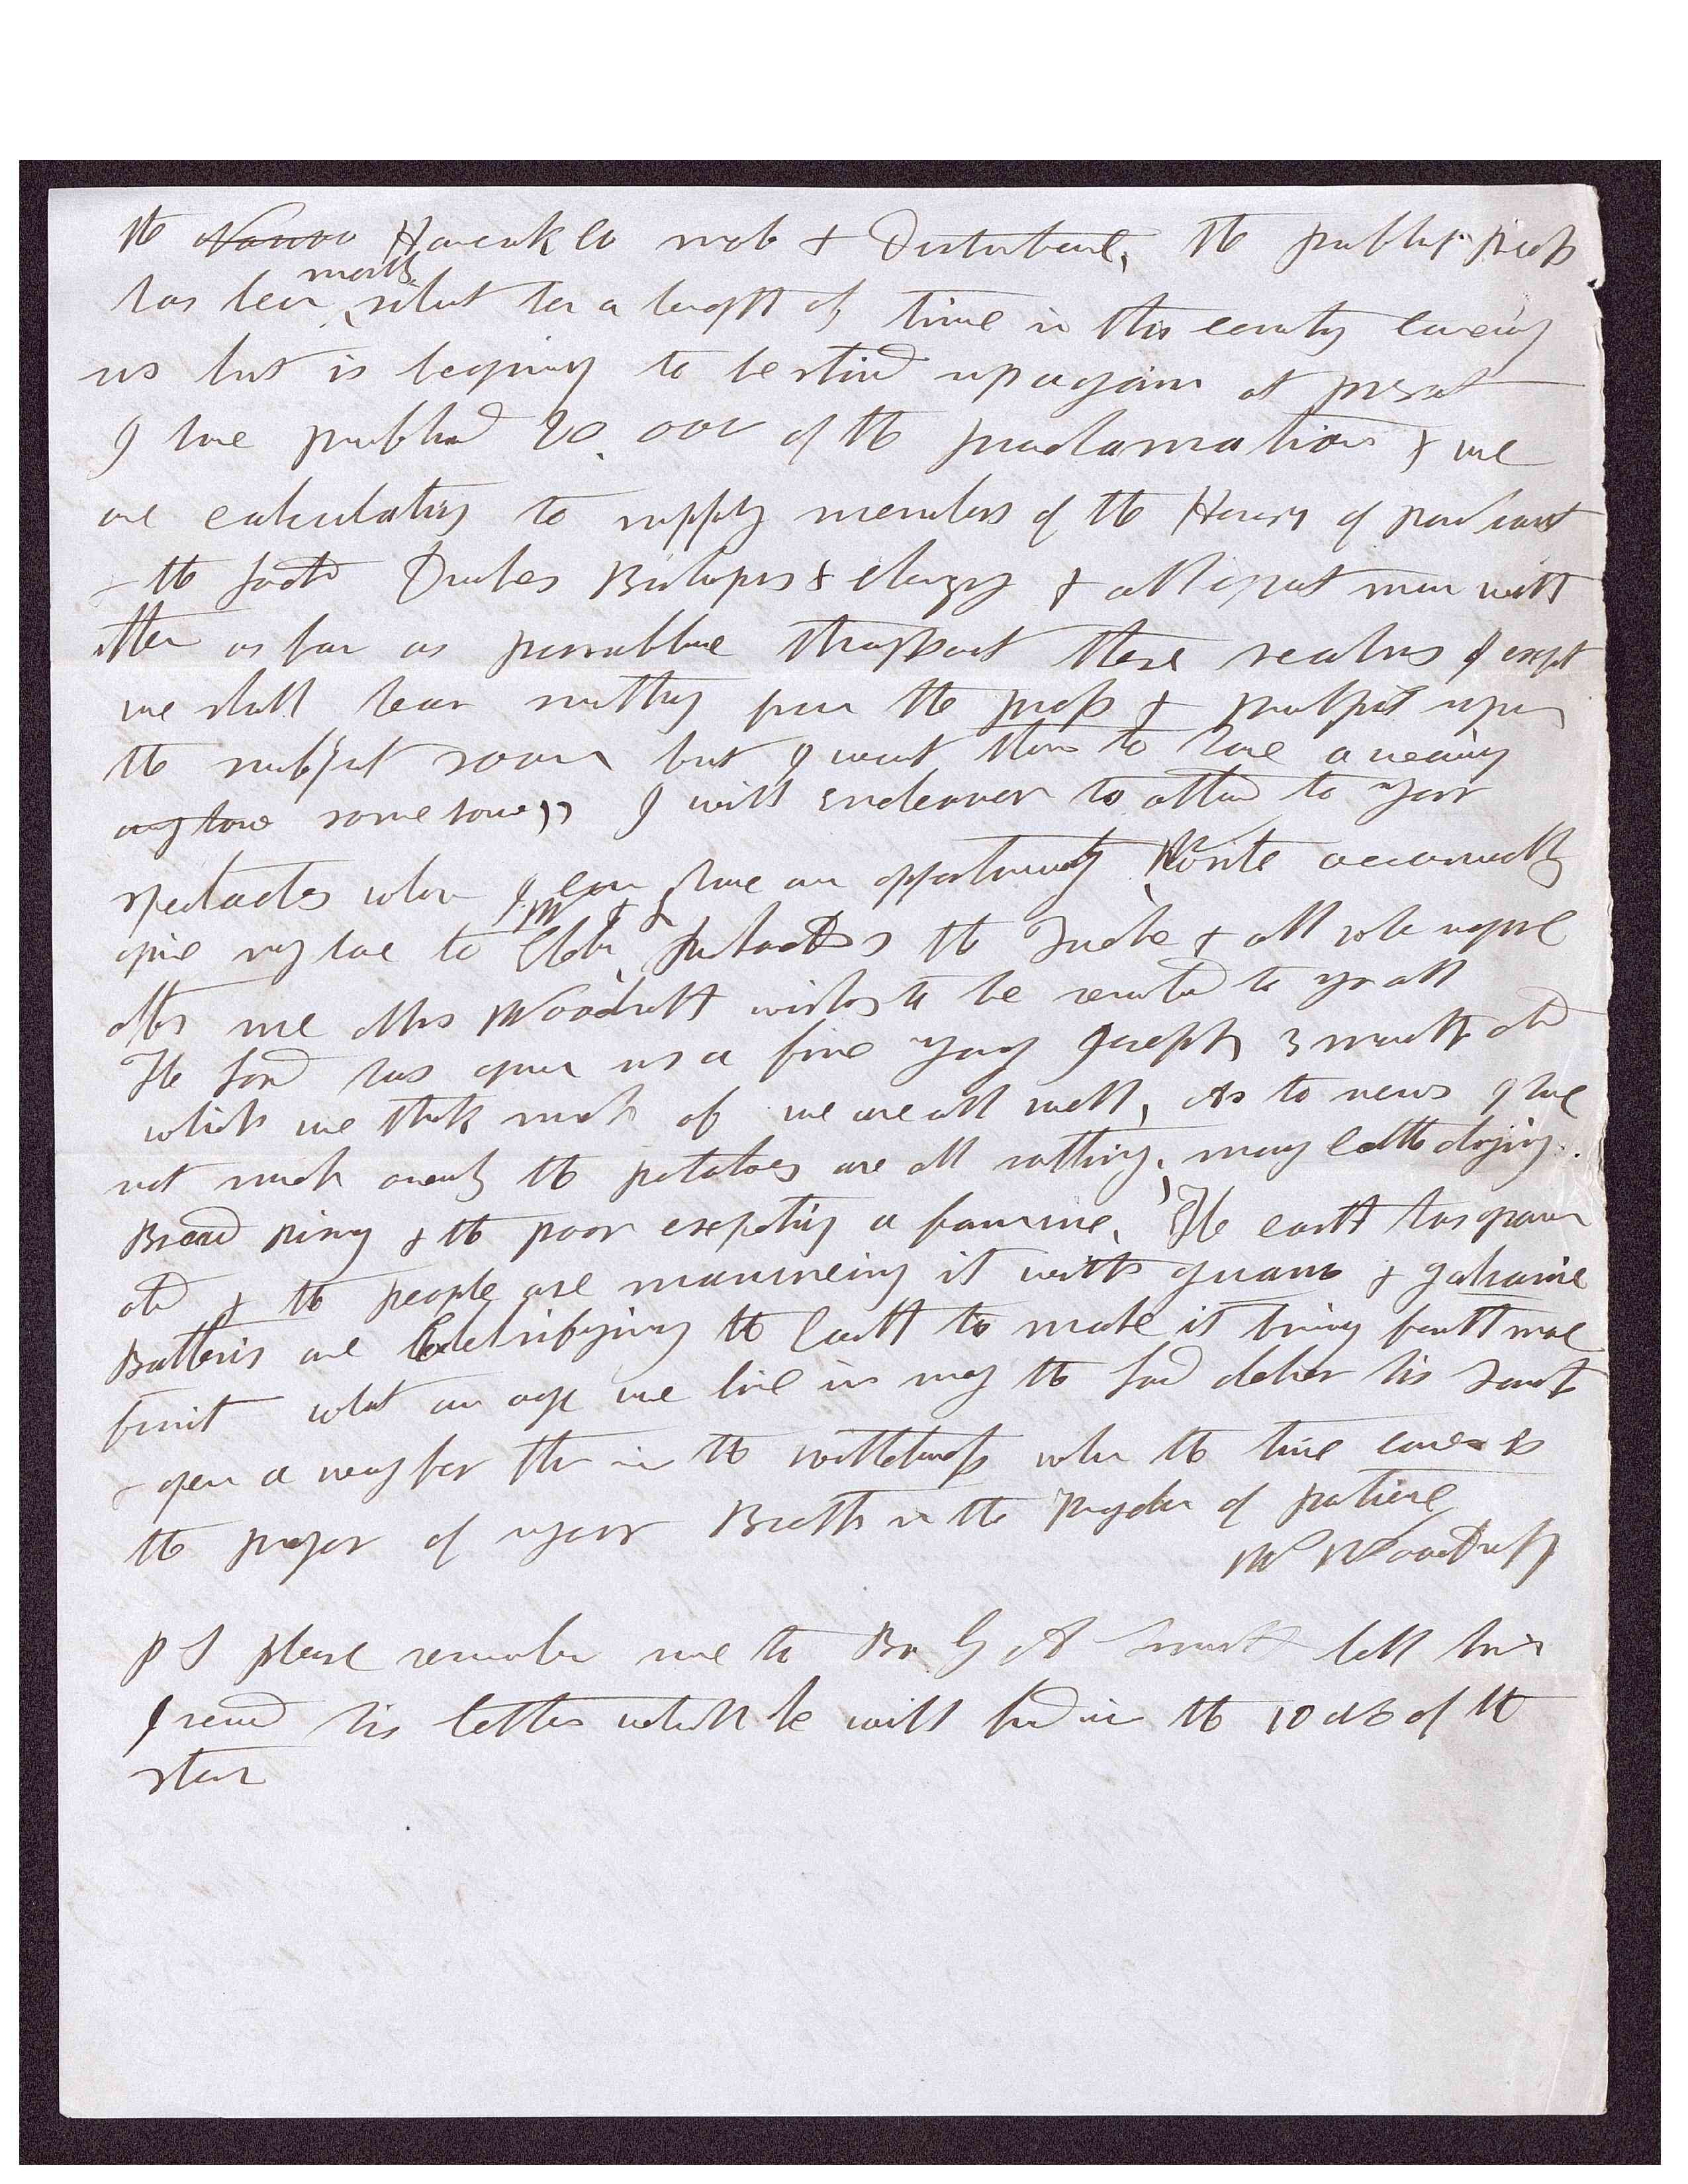 the Nauvoo Hancock Co mob & Disturbance, The public press
has been mostly silent for a length of time in this county concerning
us but is begining to be stired up again at present
I have published 20,000 of the proclamation & we
are calculating to supply members of the Houses of parliament
the Lords Dukes Bishops & clergy & all great men with
them as far as possable throughout these realms I expect
we shall hear something from the press & pulpit upon
the subject soon but I want them to have a meaning
any how some how,, I will endeavor to attend to your
spectacles when I can have an opportunity Write occasionally
give my love to Elder W & P the Twelve & all who inquire
after me Mrs Woodruff wishes to be rememberd to you all
The Lord has given us a fine young Joseph 3 months old
which we think much of we are all well, As to news I have
not much ownly the potatoes are all rotting, many cattle dying.
Bread rising & the poor expecting a famine, The earth has grown
old & the people are manureing it with guano & galvanic
Batteries are Eelectrifying the Earth to make it bring forth more
fruit what an age we live in may the Lord deliver his Saints
& open a way for them in the wilderness when the time comes is
the prayer of your Brother in the Kingdom of patience
W Woodruff
P S please remember me to Br G A Smith tell him
I received his letter which he will find in the 10 No of the
star